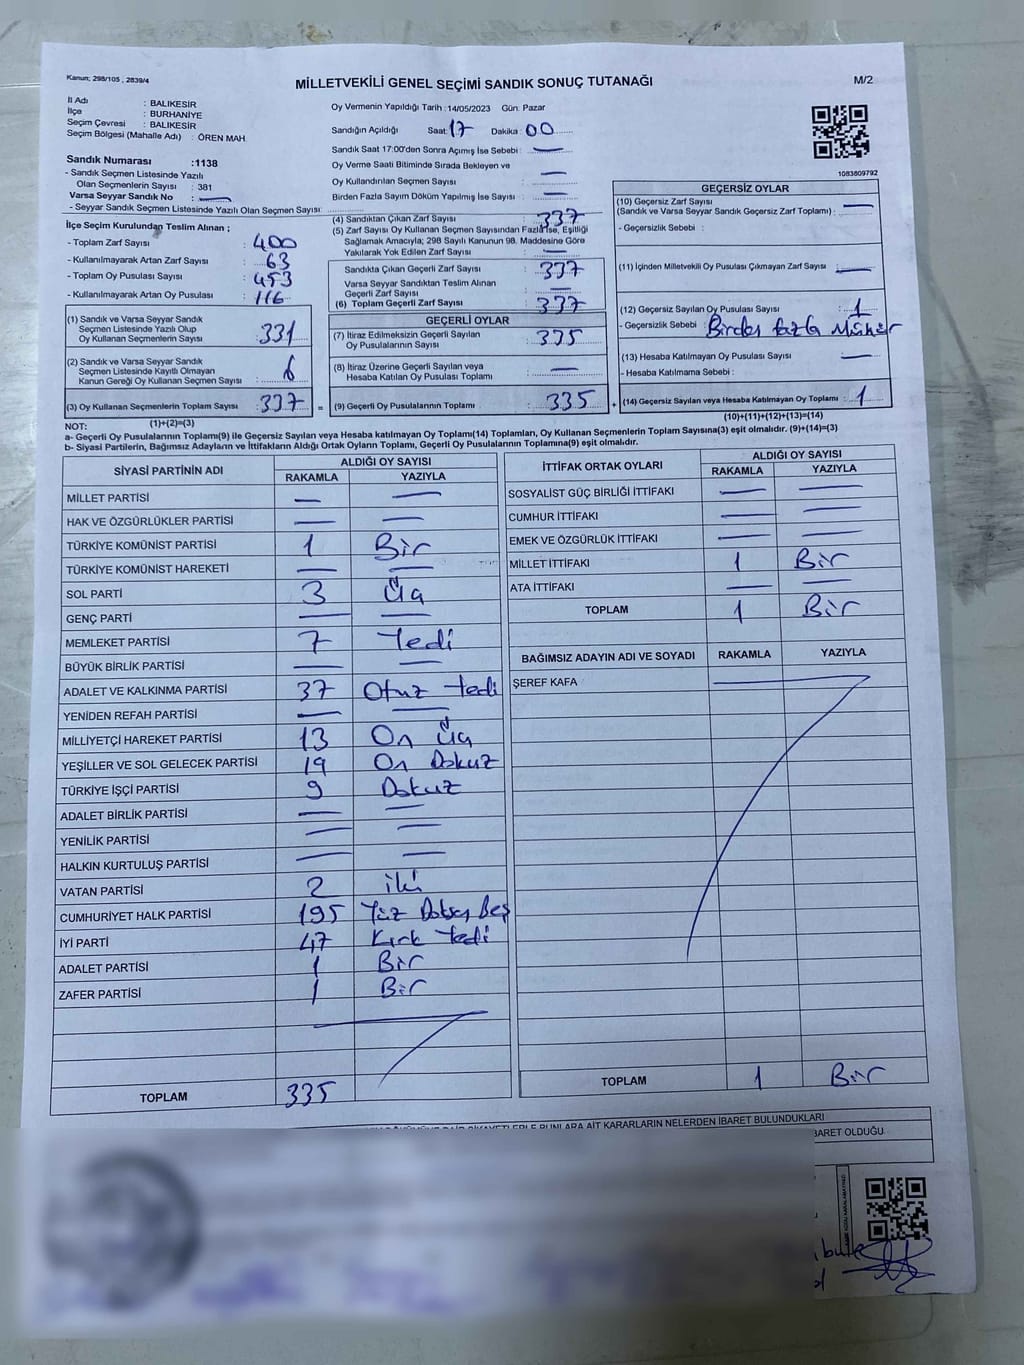 Kanun; 298/105 , 2839/4
MİLLETVEKİLİ GENEL SEÇİMİ SANDIK SONUÇ TUTANAĞI
M/2
İl Adı : BALIKESİR
İlçe : BURHANİYE
Seçim Çevresi : BALIKESİR
Seçim Bölgesi (Mahalle Adı) : ÖREN MAH.
Sandık Numarası :1138
- Sandık Seçmen Listesinde Yazılı
Olan Seçmenlerin Sayısı : 381
Varsa Seyyar Sandık No : —
- Seyyar Sandık Seçmen Listesinde Yazılı Olan Seçmen Sayısı:
Oy Vermenin Yapıldığı Tarih : 14/05/2023 Gün: Pazar
Sandığın Açıldığı Saat: 17 Dakika: 00
Sandık Saat 17:00'den Sonra Açımış İse Sebebi : —
Oy Verme Saati Bitiminde Sırada Bekleyen ve
Oy Kullandırılan Seçmen Sayısı : —
Birden Fazla Sayım Döküm Yapılmış İse Sayısı : —
1083809792
İlçe Seçim Kurulundan Teslim Alınan ;
- Toplam Zarf Sayısı : 400
- Kullanılmayarak Artan Zarf Sayısı : 63
- Toplam Oy Pusulası Sayısı : 453
- Kullanılmayarak Artan Oy Pusulası : 116
(1) Sandık ve Varsa Seyyar Sandık
Seçmen Listesinde Yazılı Olup
Oy Kullanan Seçmenlerin Sayısı : 331
(2) Sandık ve Varsa Seyyar Sandık
Seçmen Listesinde Kayıtlı Olmayan
Kanun Gereği Oy Kullanan Seçmen Sayısı : 6
(3) Oy Kullanan Seçmenlerin Toplam Sayısı : 337
(4) Sandıktan Çıkan Zarf Sayısı : 337
(5) Zarf Sayısı Oy Kullanan Seçmen Sayısından Fazla İse, Eşitliği
Sağlamak Amacıyla; 298 Sayılı Kanunun 98. Maddesine Göre
Yakılarak Yok Edilen Zarf Sayısı : —
Sandıkta Çıkan Geçerli Zarf Sayısı : 337
Varsa Seyyar Sandıktan Teslim Alınan
Geçerli Zarf Sayısı : —
(6) Toplam Geçerli Zarf Sayısı : 337
GEÇERLİ OYLAR
(7) İtiraz Edilmeksizin Geçerli Sayılan
Oy Pusulalarının Sayısı : 335
(8) İtiraz Üzerine Geçerli Sayılan veya
Hesaba Katılan Oy Pusulası Toplamı : —
= (9) Geçerli Oy Pusulalarının Toplamı : 335 +
GEÇERSİZ OYLAR
(10) Geçersiz Zarf Sayısı : —
(Sandık ve Varsa Seyyar Sandık Geçersiz Zarf Toplamı)
- Geçersizlik Sebebi :
(11) İçinden Milletvekili Oy Pusulası Çıkmayan Zarf Sayısı : —
(12) Geçersiz Sayılan Oy Pusulası Sayısı : 1
- Geçersizlik Sebebi : Birden fazla Mühür
(13) Hesaba Katılmayan Oy Pusulası Sayısı : —
- Hesaba Katılmama Sebebi :
(14) Geçersiz Sayılan veya Hesaba Katılmayan Oy Toplamı : 1
NOT: (1)+(2)=(3) (10)+(11)+(12)+(13)=(14)
a- Geçerli Oy Pusulalarının Toplamı(9) ile Geçersiz Sayılan veya Hesaba katılmayan Oy Toplamı(14) Toplamları, Oy Kullanan Seçmenlerin Toplam Sayısına(3) eşit olmalıdır. (9)+(14)=(3)
b- Siyasi Partilerin, Bağımsız Adayların ve İttifakların Aldığı Ortak Oyların Toplamı, Geçerli Oy Pusulalarının Toplamına(9) eşit olmalıdır.
SİYASİ PARTİNİN ADI ALDIĞI OY SAYISI
RAKAMLA YAZIYLA
MİLLET PARTİSİ — —
HAK VE ÖZGÜRLÜKLER PARTİSİ — —
TÜRKİYE KOMÜNİST PARTİSİ 1 Bir
TÜRKİYE KOMÜNİST HAREKETİ — —
SOL PARTİ 3 Üç
GENÇ PARTİ — —
MEMLEKET PARTİSİ 7 Yedi
BÜYÜK BİRLİK PARTİSİ — —
ADALET VE KALKINMA PARTİSİ 37 Otuz Yedi
YENİDEN REFAH PARTİSİ — —
MİLLİYETÇİ HAREKET PARTİSİ 13 On Üç
YEŞİLLER VE SOL GELECEK PARTİSİ 19 On Dokuz
TÜRKİYE İŞÇİ PARTİSİ 9 Dokuz
ADALET BİRLİK PARTİSİ — —
YENİLİK PARTİSİ — —
HALKIN KURTULUŞ PARTİSİ — —
VATAN PARTİSİ 2 iki
CUMHURİYET HALK PARTİSİ 195 Yüz Doksan Beş
İYİ PARTİ 47 Kırk Yedi
ADALET PARTİSİ 1 Bir
ZAFER PARTİSİ 1 Bir
TOPLAM 335
İTTİFAK ORTAK OYLARI ALDIĞI OY SAYISI
RAKAMLA YAZIYLA
SOSYALİST GÜÇ BİRLİĞİ İTTİFAKI — —
CUMHUR İTTİFAKI — —
EMEK VE ÖZGÜRLÜK İTTİFAKI — —
MİLLET İTTİFAKI 1 Bir
ATA İTTİFAKI — —
TOPLAM 1 Bir
BAĞIMSIZ ADAYIN ADI VE SOYADI RAKAMLA YAZIYLA
ŞEREF KAFA —
TOPLAM 1 Bir
AİT KARARLARIN NELERDEN İBARET BULUNDUKLARI
BARET OLDUĞU